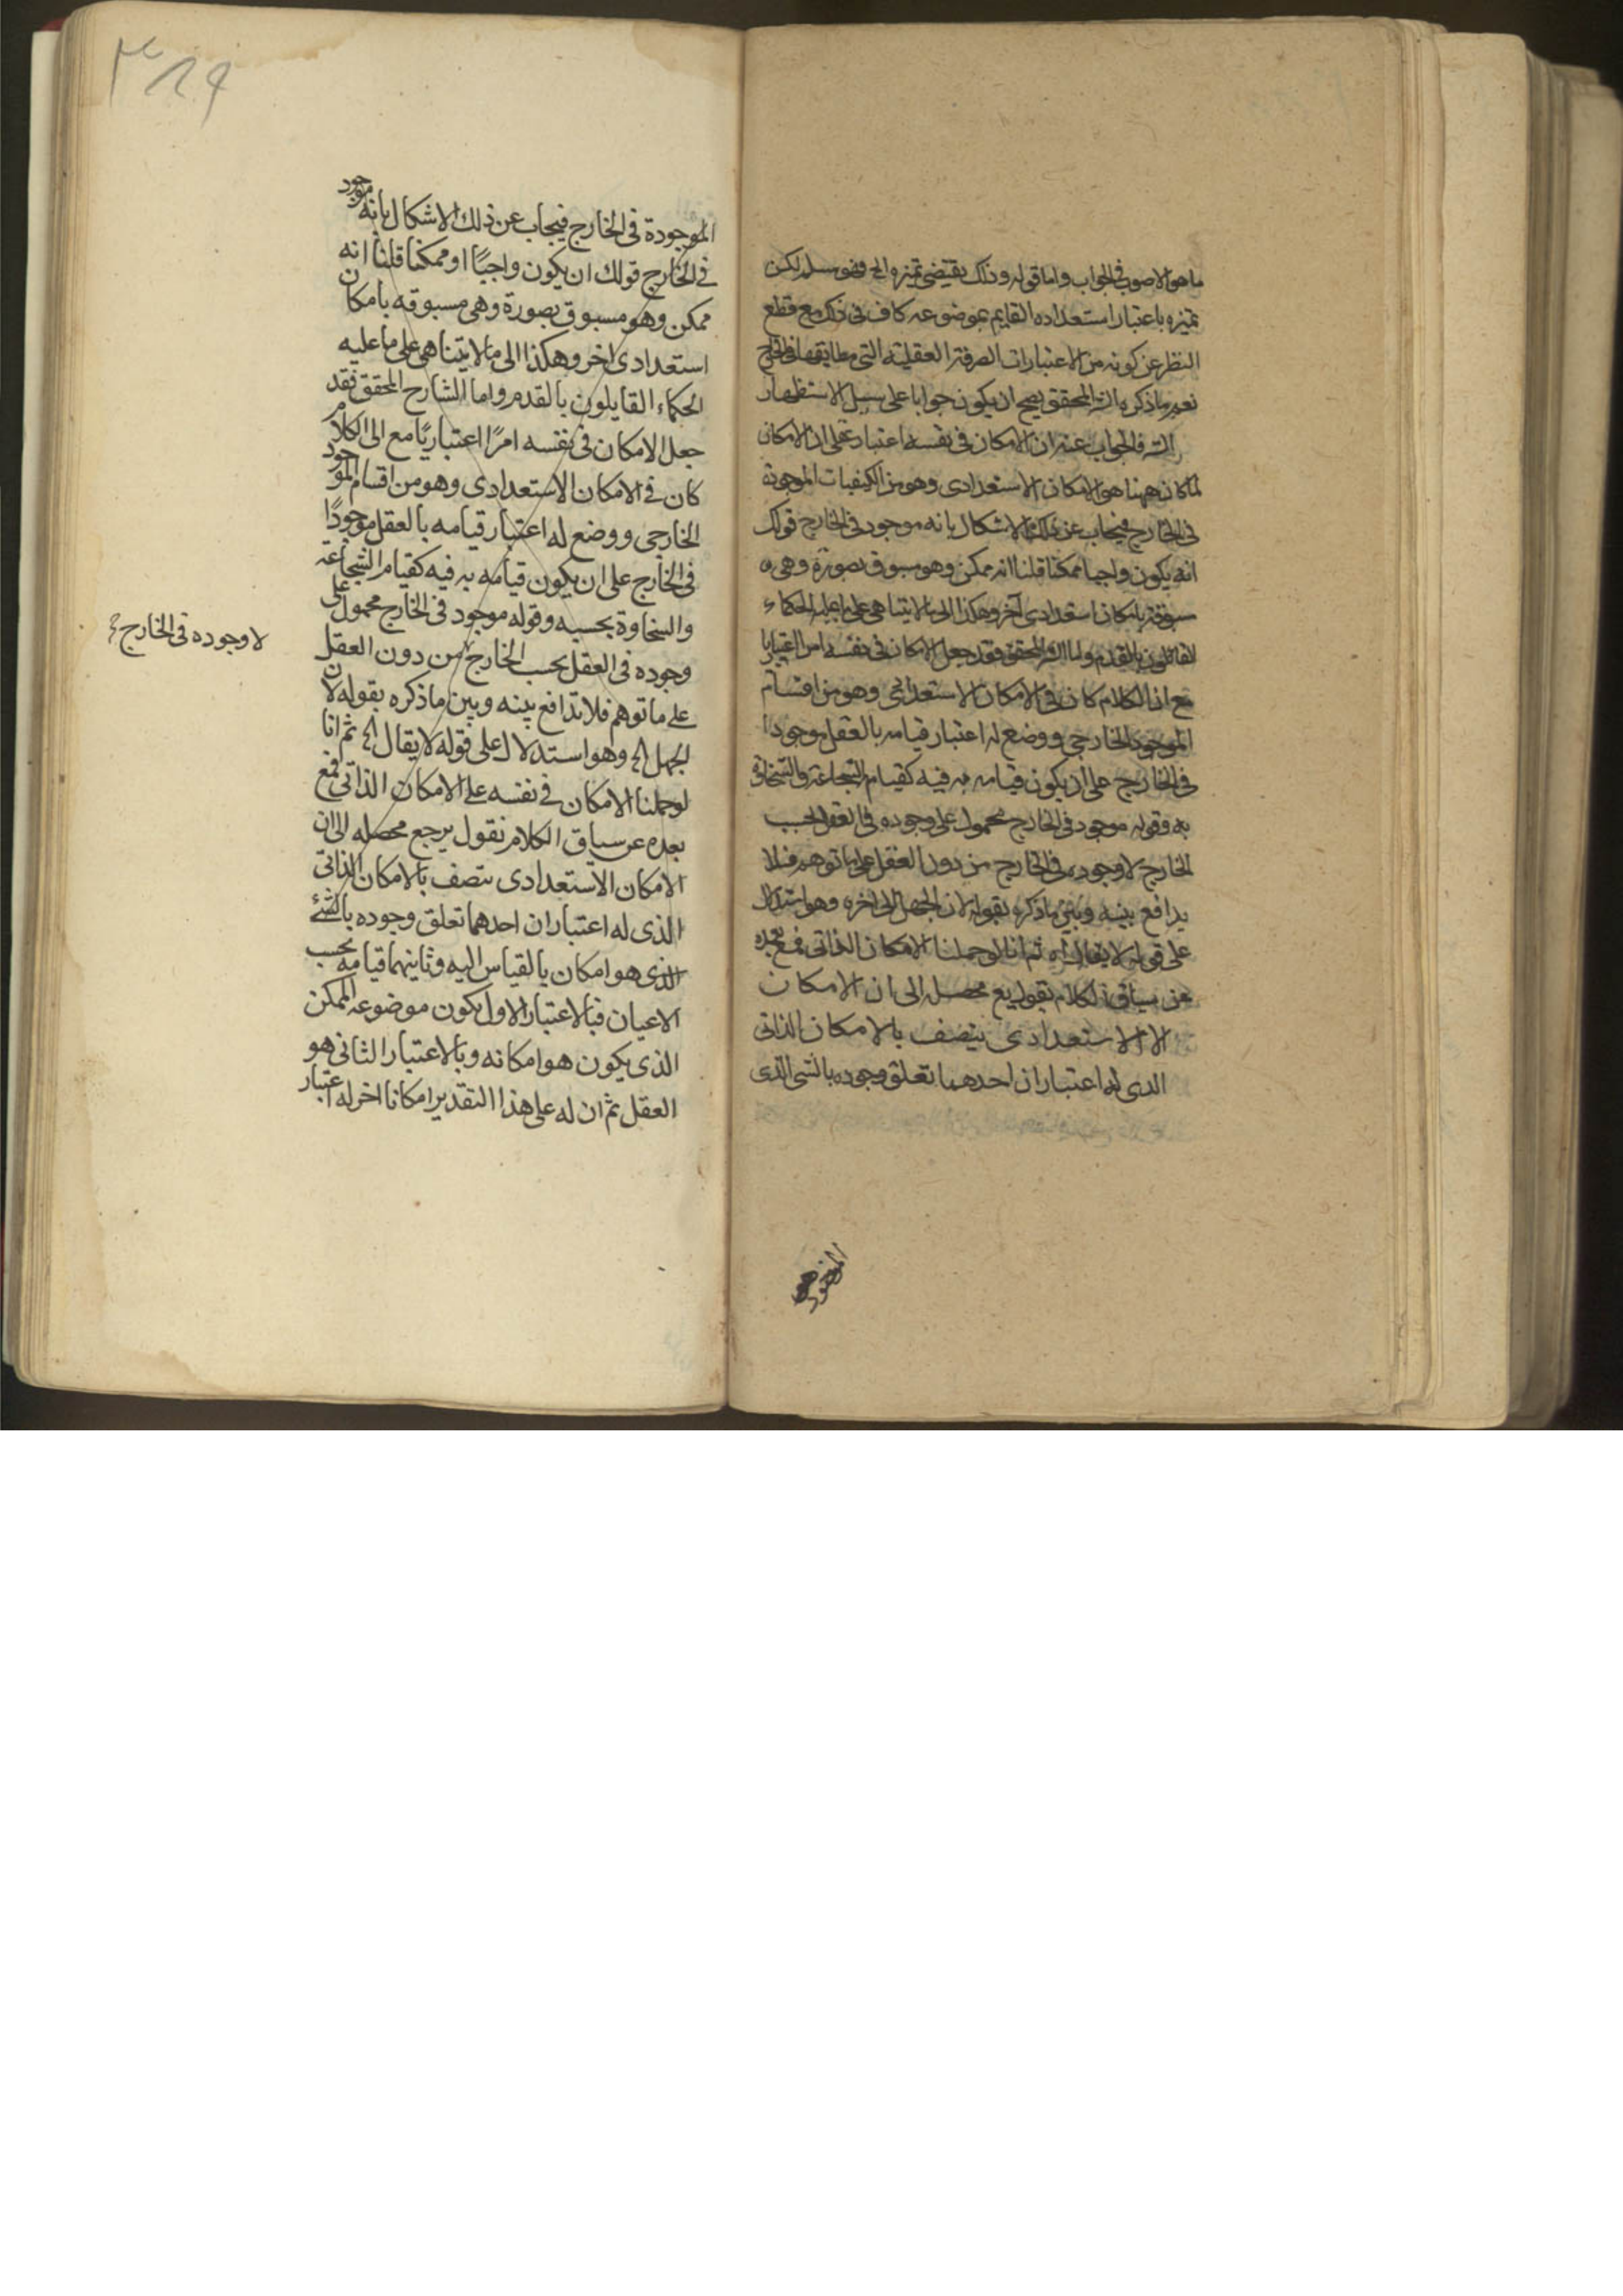 ما هو الاصوب فى الجواب واما قوله وذلك يقتضى تميزه الخ فهو مسلم لكن
تميزه باعتبار استعداده القايم بموضوعه كاف فى ذلك مع قطع
النظر عن كونه من الاعتبارات الصرفة العقلية التى مطابقها فى الخارج
نعم ما ذكره الش المحقق يصح ان يكون جوابا على سبيل الاستظهار
الش فالجواب عنه ان الامكان فى نفسه اعتبار عقلى ان الامكان
لما كان ههنا هو الامكان الاستعدادى وهو من الكيفيات الموجودة
فى الخارج فيجاب عن ذلك الاشكال بانه موجود فى الخارج قولك
انه يكون واجبا ممكنا قلنا انه ممكن وهو مسبوق بصورة وهى ه
مسبوقة بامكان استعدادى آخر وهكذا الى ما لا يتناهى على ما عليه الحكماء
القائلون بالقدم واما الش المحقق فقد جعل الامكان فى نفسه امرا اعتباريا
مع ان الكلام كان فى الامكان الاستعدادى وهو من اقسام
الموجود الخارجى ووضع له اعتبار قيامه بالعقل موجودا
فى الخارج على ان يكون قيامه به فيه كقيام الشجاعة والسخاوة
به وقوله موجود فى الخارج محمول على وجوده فى العقل بحسب
الخارج لا وجوده فى الخارج من دون العقل على ما توهم فلا
يدافع بينه وبين ما ذكره بقوله لان الجهل الى اخره وهو استدلال
على قوله لا يقال اه ثم انا لو حملنا الامكان الذاتى فمع بعده
عن سياق الكلام نقول يرجع محصله الى ان الامكان
الا الاستعدادى يتصف بالامكان الذاتى
الذى له اعتباران احدهما تعلق وجوده بالشى الذى
الموجودة فى الخارج فيجاب عن ذلك الاشكال بانه موجود
فى الخارج قولك ان يكون واجبًا او ممكنا قلنا انه
ممكن وهو مسبوق بصورة وهى مسبوقه بامكان
استعدادى اخر وهكذا الى ما لا يتناهى على ما عليه
الحكماء القايلون بالقدم واما الشارح المحقق فقد
جعل الامكان فى نفسه امرًا اعتباريًا مع ان الكلام
كان فى الامكان الاستعدادى وهو من اقسام الموجود
الخارجى ووضع له اعتبار قيامه بالعقل موجودًا
فى الخارج على ان يكون قيامه به فيه كقيام الشجاعة
والسخاوة بحسبه وقوله موجود فى الخارج محمول على
وجوده فى العقل بحسب الخارج من دون العقل
لا وجوده فى الخارج
على ما توهم فلا تدافع بينه وبين ما ذكره بقوله لان
الجهل اه وهو استدلال على قوله لا يقال اه ثم انا
لو حملنا الامكان فى نفسه على الامكان الذاتى فمع
بعده عن سياق الكلام نقول يرجع محصله الى ان
الامكان الاستعدادى يتصف بالامكان الذاتى
الذى له اعتباران احدهما تعلق وجوده بالشئ
الذى هو امكان بالقياس اليه وثانيهما قيامه بحسب
الاعيان فبالاعتبار الاول يكون موضوعه الممكن
الذى يكون هو امكانه وبالاعتبار الثانى هو
العقل ثم ان له على هذا التقدير امكانا اخر له اعتبار